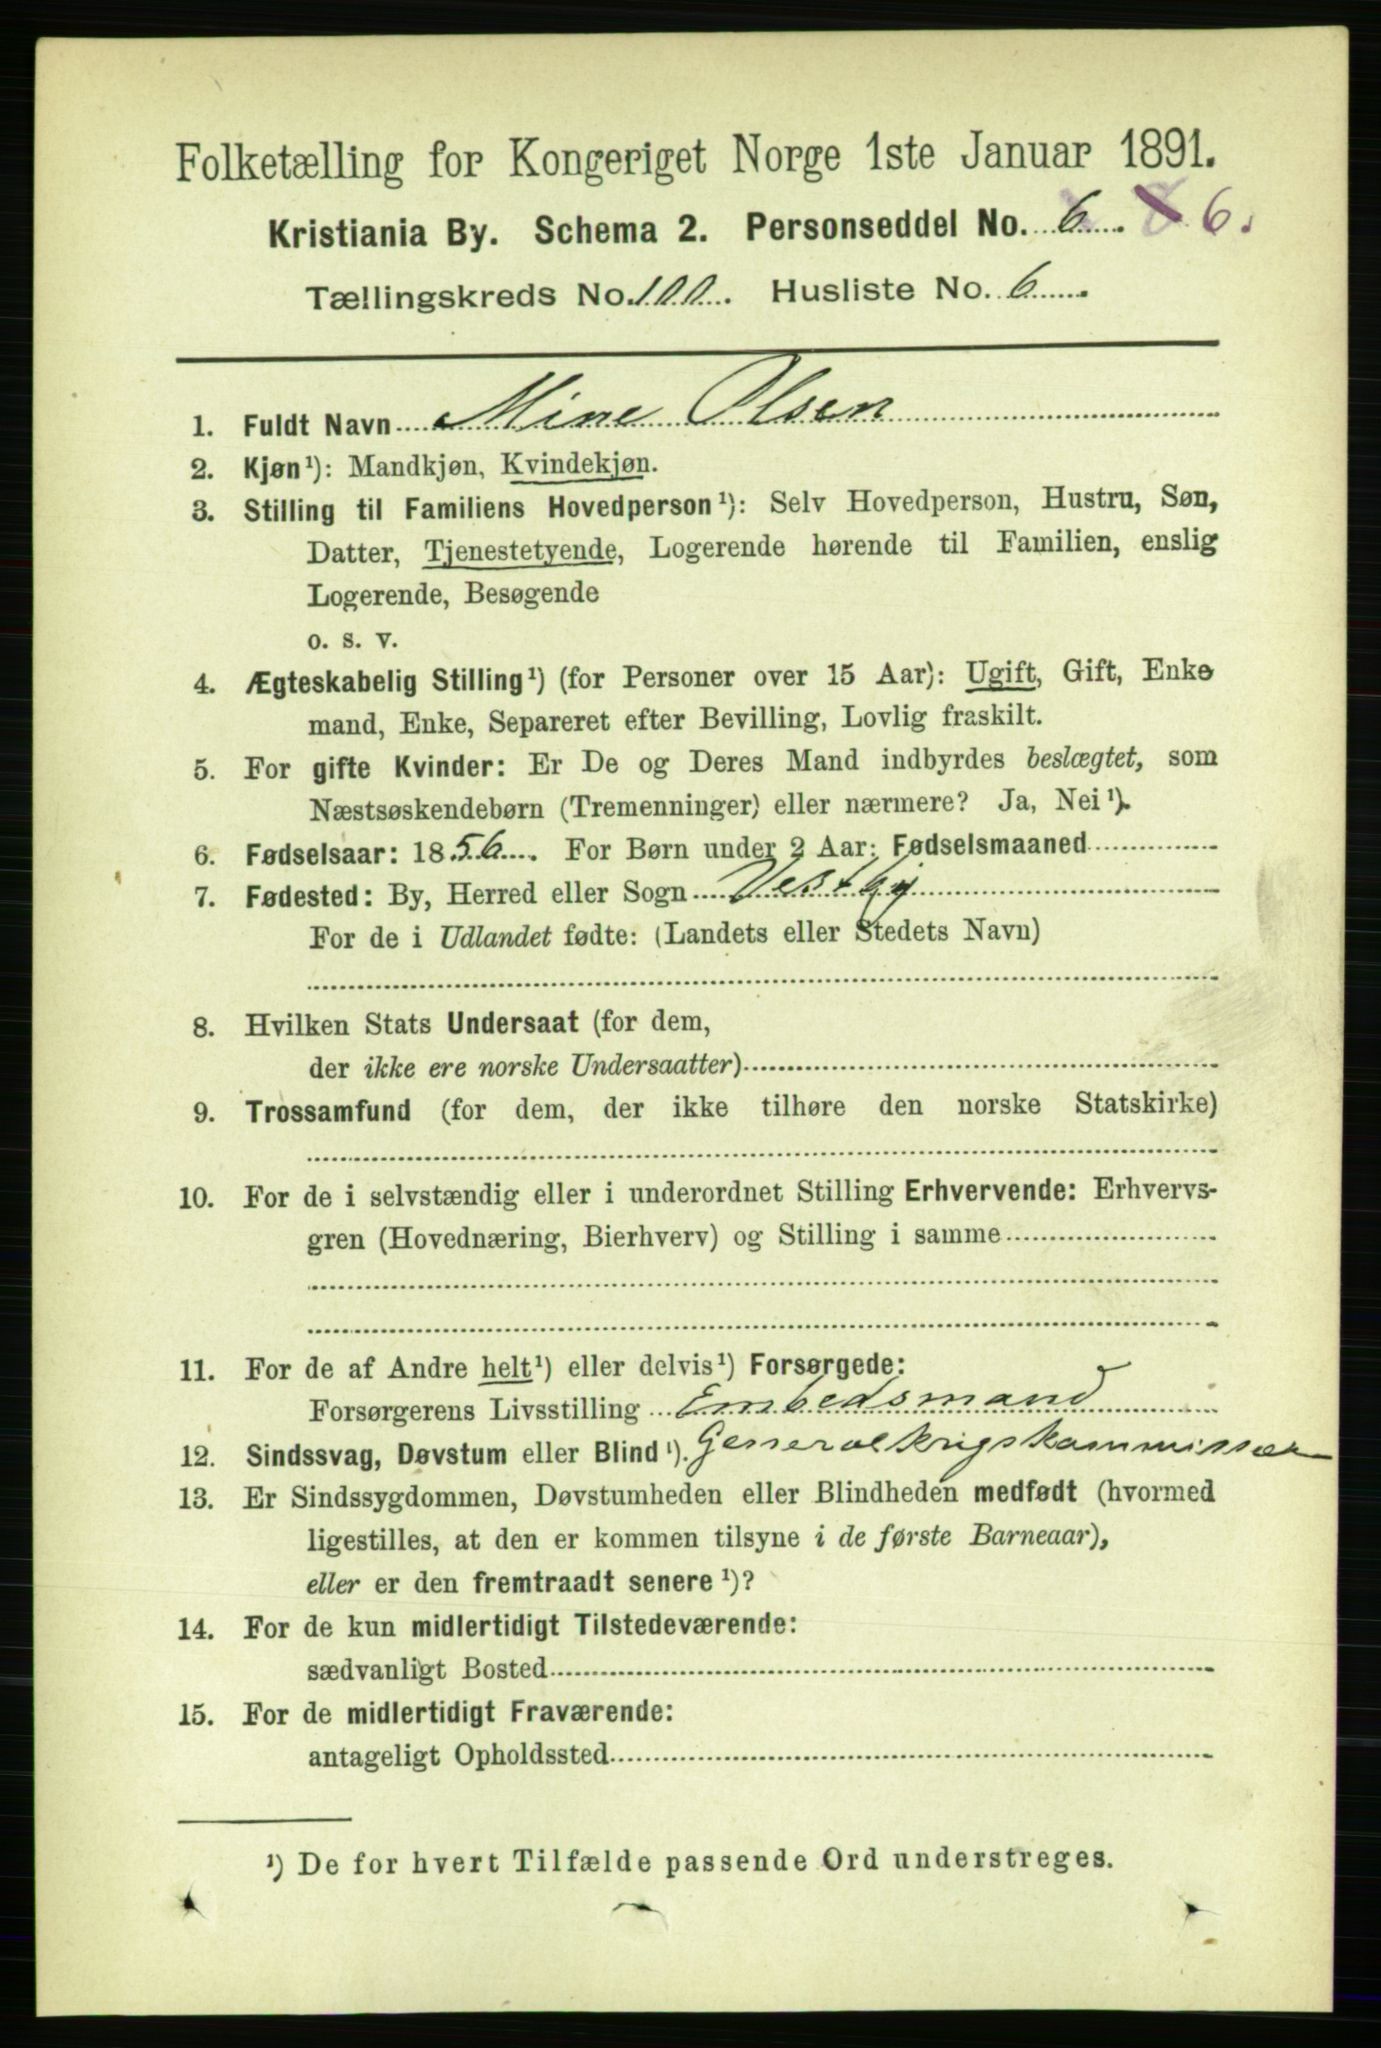 Folketælling for Kongeriget Norge 1ste Januar 1891.
Kristiania By. Schema 2. Personseddel No. 6. 6.
Tællingskreds No. 100. Husliste No. 6
1. Fuldt Navn Mine Olsen
2. Kjøn¹): Mandkjøn, Kvindekjøn.
3. Stilling til Familiens Hovedperson¹): Selv Hovedperson, Hustru, Søn,
Datter, Tjenestetyende, Logerende hørende til Familien, enslig
Logerende, Besøgende
o. s. v.
4. Ægteskabelig Stilling¹) (for Personer over 15 Aar): Ugift, Gift, Enke
mand, Enke, Separeret efter Bevilling, Lovlig fraskilt.
5. For gifte Kvinder: Er De og Deres Mand indbyrdes beslægtet, som
Næstsøskendebørn (Tremenninger) eller nærmere? Ja, Nei¹).
6. Fødselsaar: 1856. For Børn under 2 Aar: Fødselsmaaned
7. Fødested: By, Herred eller Sogn Vestby
For de i Udlandet fødte: (Landets eller Stedets Navn)
8. Hvilken Stats Undersaat (for dem,
der ikke ere norske Undersaatter)
9. Trossamfund (for dem, der ikke tilhøre den norske Statskirke)
10. For de i selvstændig eller i underordnet Stilling Erhvervende: Erhvervs-
gren (Hovednæring, Bierhverv) og Stilling i samme
11. For de af Andre helt¹) eller delvis¹) Forsørgede:
Forsørgerens Livsstilling Embedsmand
12. Sindssvag, Døvstum eller Blind¹). Generalkrigskommissær
13. Er Sindssygdommen, Døvstumheden eller Blindheden medfødt (hvormed
ligestilles, at den er kommen tilsyne i de første Barneaar),
eller er den fremtraadt senere¹)?
14. For de kun midlertidigt Tilstedeværende:
sædvanligt Bosted
15. For de midlertidigt Fraværende:
antageligt Opholdssted
¹) De for hvert Tilfælde passende Ord understreges.